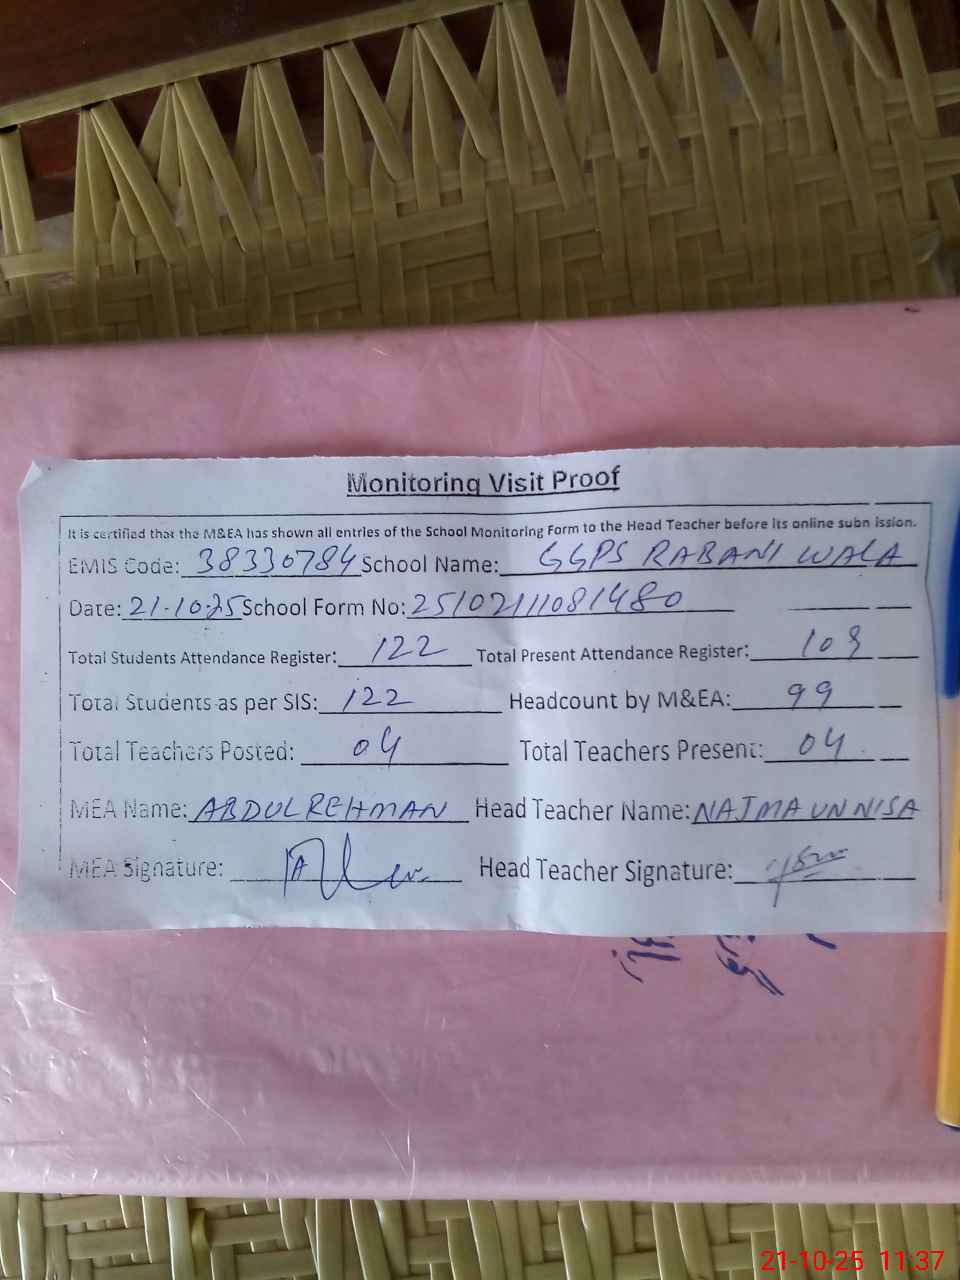 Monitoring Visit Proof
It is certified that the M&EA has shown all entries of the School Monitoring Form to the Head Teacher before its online subn ission.
EMIS Code: 38330784 School Name: GGPS RABANI WALA
Date: 21-10-25 School Form No: 25102111081480
Total Students Attendance Register: 122 Total Present Attendance Register:
Total Students as per SIS: 122 Headcount by M&EA: 99
Total Teachers Posted: 04 Total Teachers Present: 04
MEA Name: ABDUL REHMAN Head Teacher Name: NAJMA UN NISA
MEA Signature: Head Teacher Signature:
21-10-25 11:37